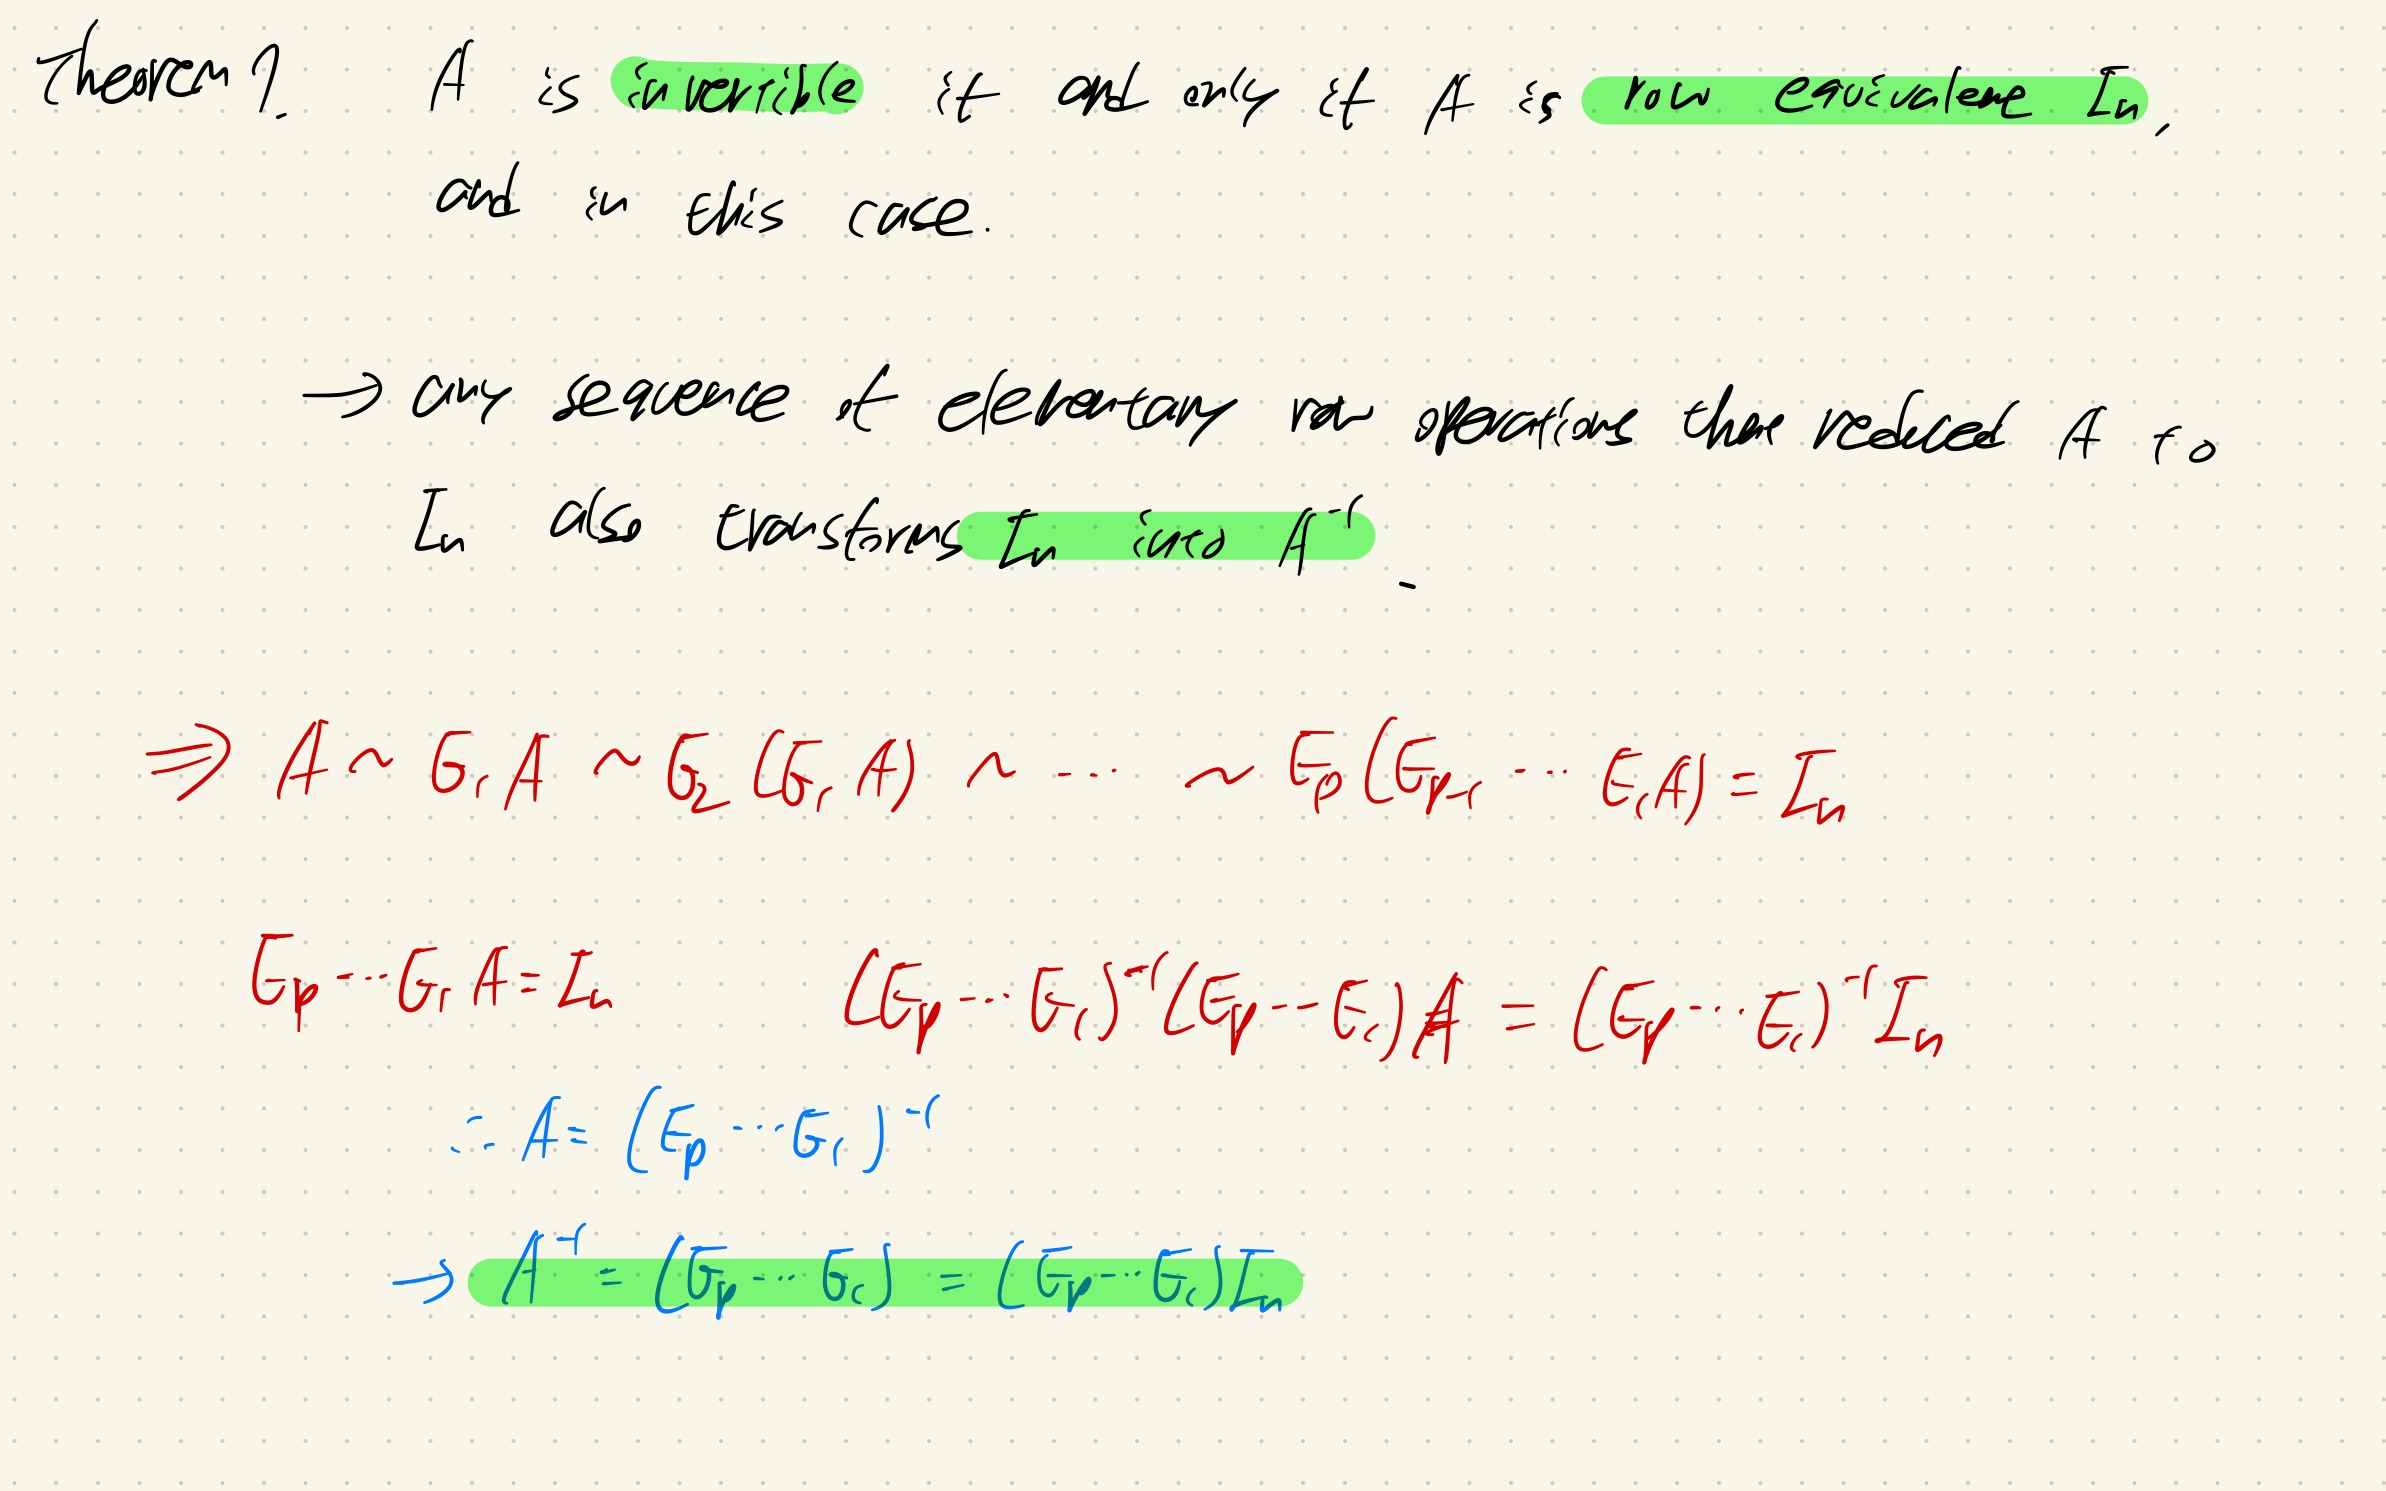 Theorem 7. A is invertible if and only if A is row equivalent In,
and in this case.
→ any sequence of elementary row operations that reduced A to
In also transforms In into A⁻¹.
⇒ A ~ E₁A ~ E₂(E₁A) ~ ... ~ Ep(Ep-1 ... E₁A) = In
Ep...E₁A = In (Ep...E₁)⁻¹(Ep...E₁)A = (Ep...E₁)⁻¹In
∴ A = (Ep...E₁)⁻¹
→ A⁻¹ = (Ep...E₁) = (Ep...E₁)In